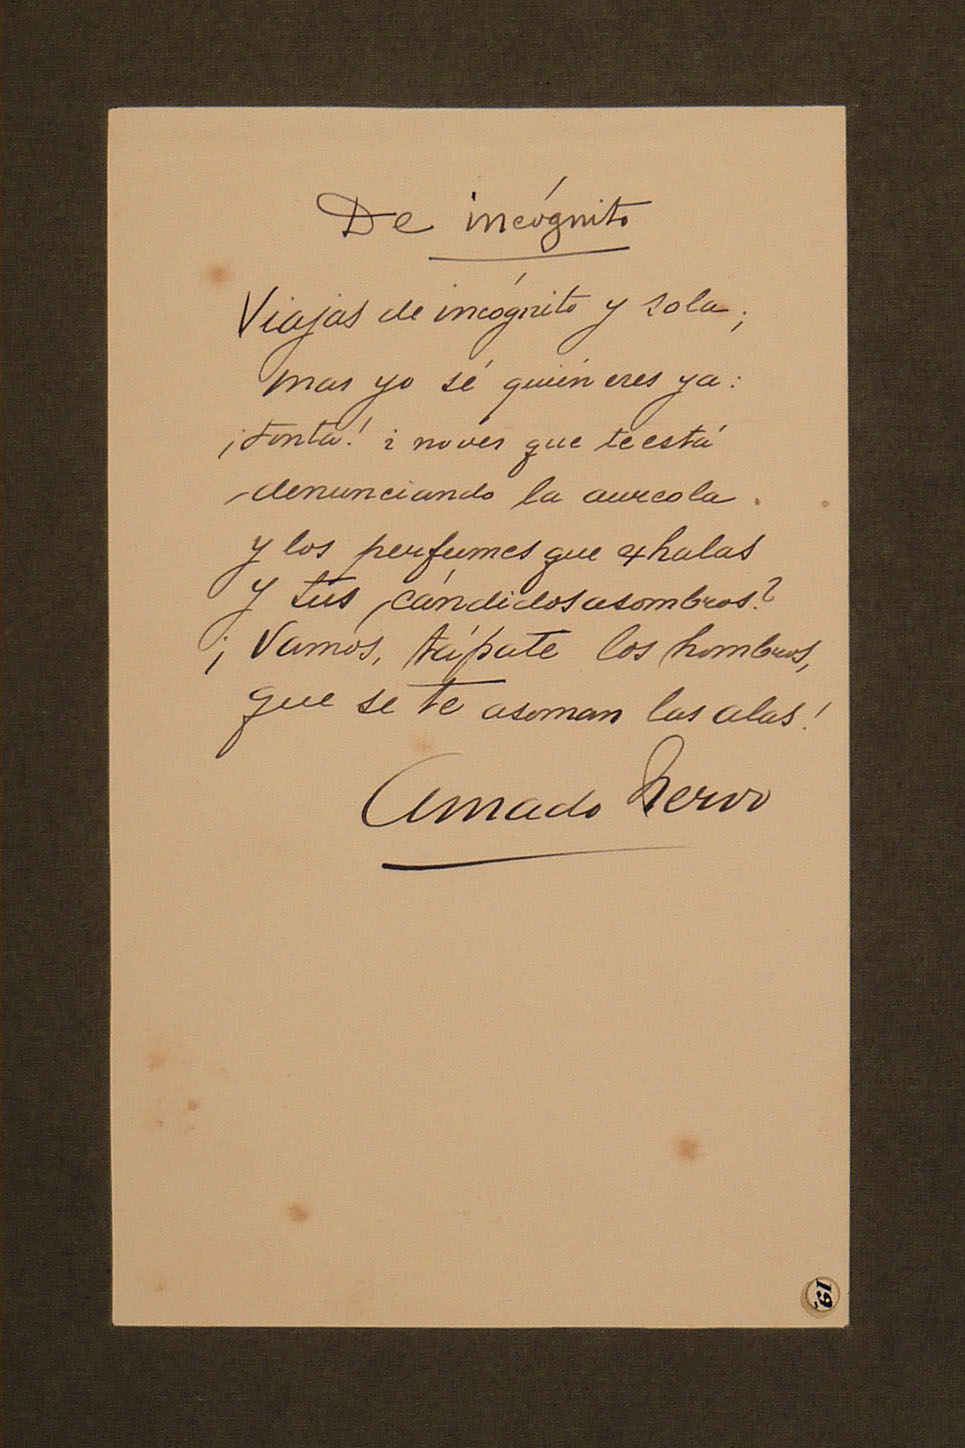 De incógnito
Viajas de incógnito y sola;
mas yo sé quién eres ya:
¡tonta! ¿no ves que te está
denunciando la aureola
y los perfumes que exhalas
y tus cándidos asombros?
¡Vamos, tápate los hombros,
que se te asoman las alas!
Amado Nervo
19